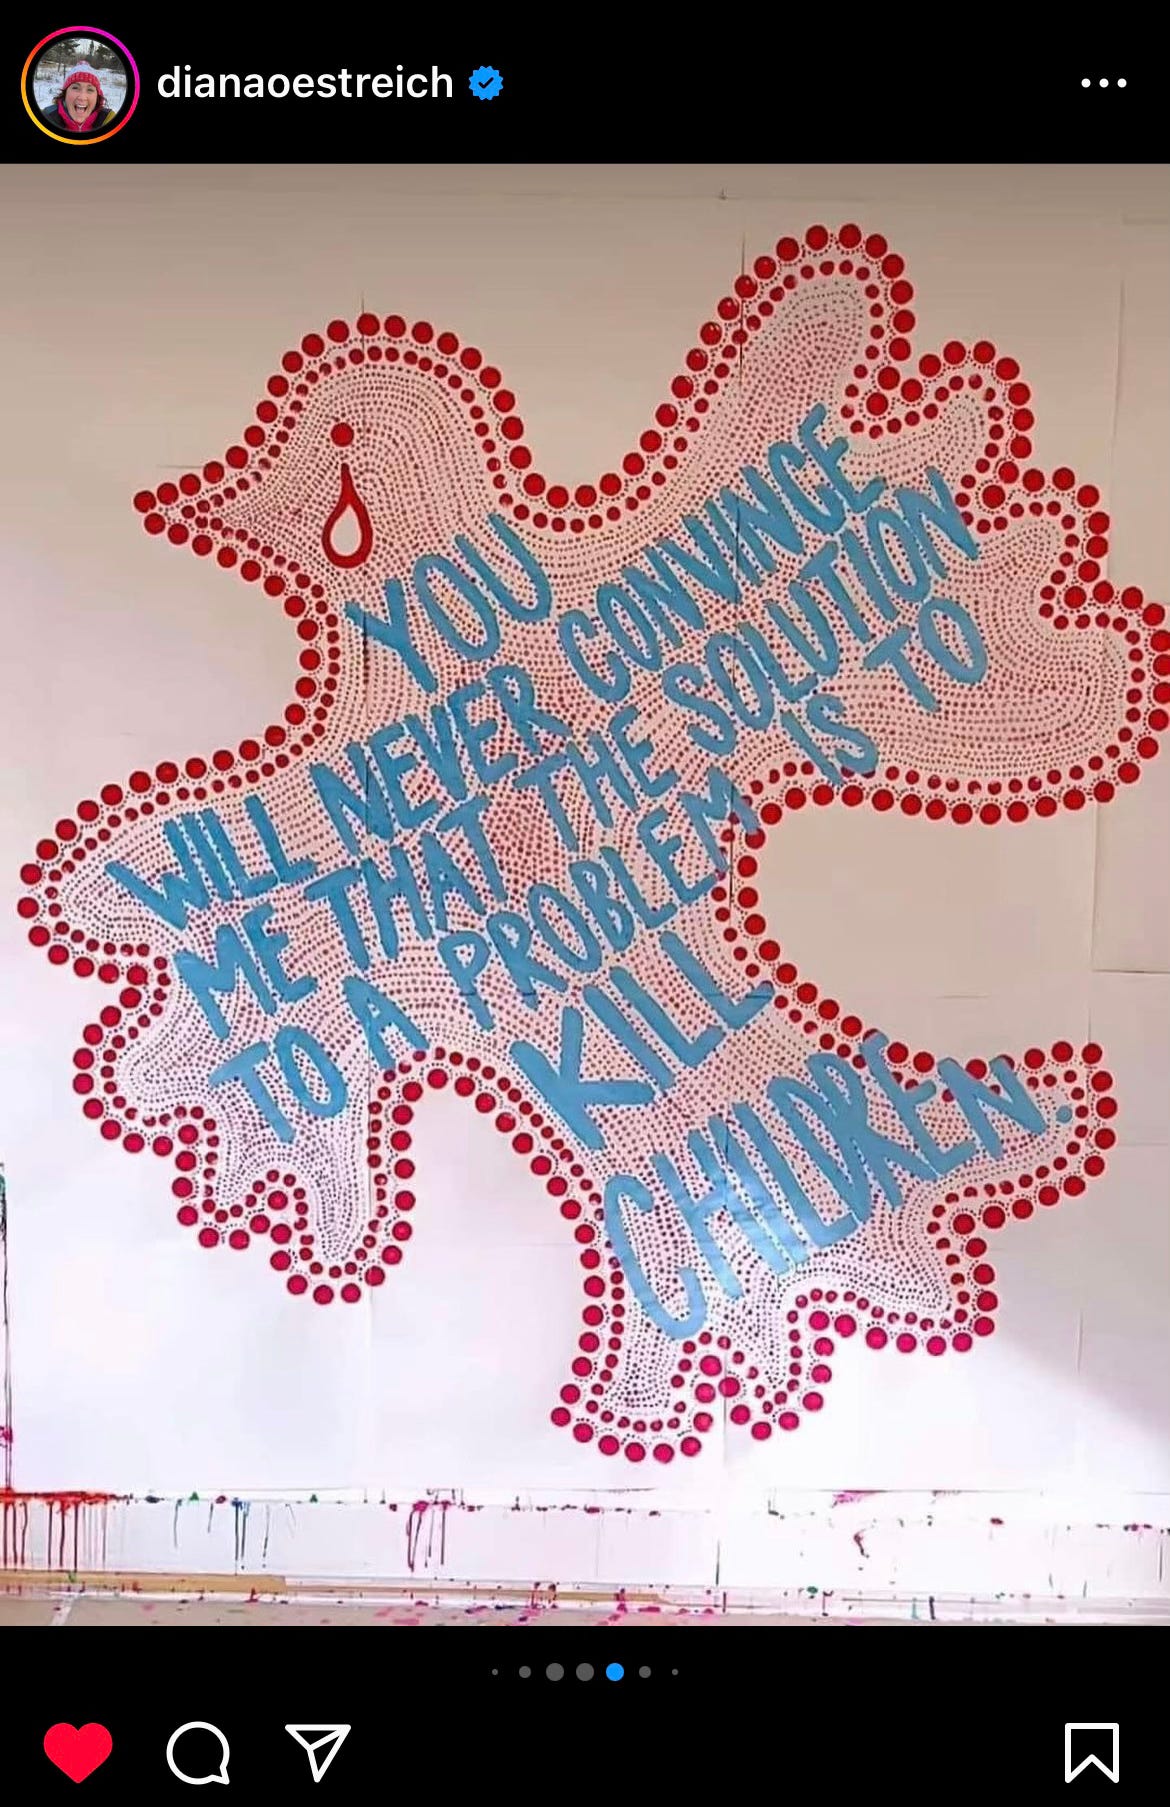 dianaoestreich
YOU
WILL NEVER CONVINCE
ME THAT THE SOLUTION
TO A PROBLEM IS TO
KILL
CHILDREN.